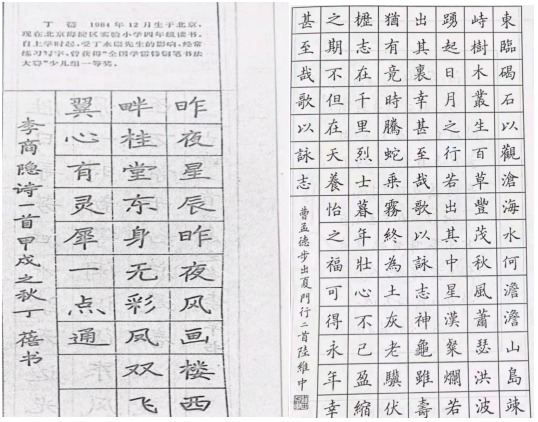 丁 蓓 1984年12月生于北京，
现在北京海淀区实验小学四年级读书。
自上学时起，受丁永康先生的影响，经常
练习写字，曾获得“全国学雷锋钢笔书法
大赛”少儿组一等奖。
昨夜星辰昨夜风画楼西
畔桂堂东身无彩凤双飞
翼心有灵犀一点通
李商隐诗一首甲戌之秋丁蓓书
東臨碣石以觀滄海水何澹澹山島竦
峙樹木叢生百草豐茂秋風蕭瑟洪波
踴起日月之行若出其中星漢粲爛若
出其裏幸甚至哉歌以詠志神龜雖壽
猶有竟時騰蛇乘霧終為土灰老驥伏
櫪志在千里烈士暮年壯心不已盈縮
之期不但在天養怡之福可得永年幸
甚至哉歌以詠志
曹孟德步出夏門行二首陸維中